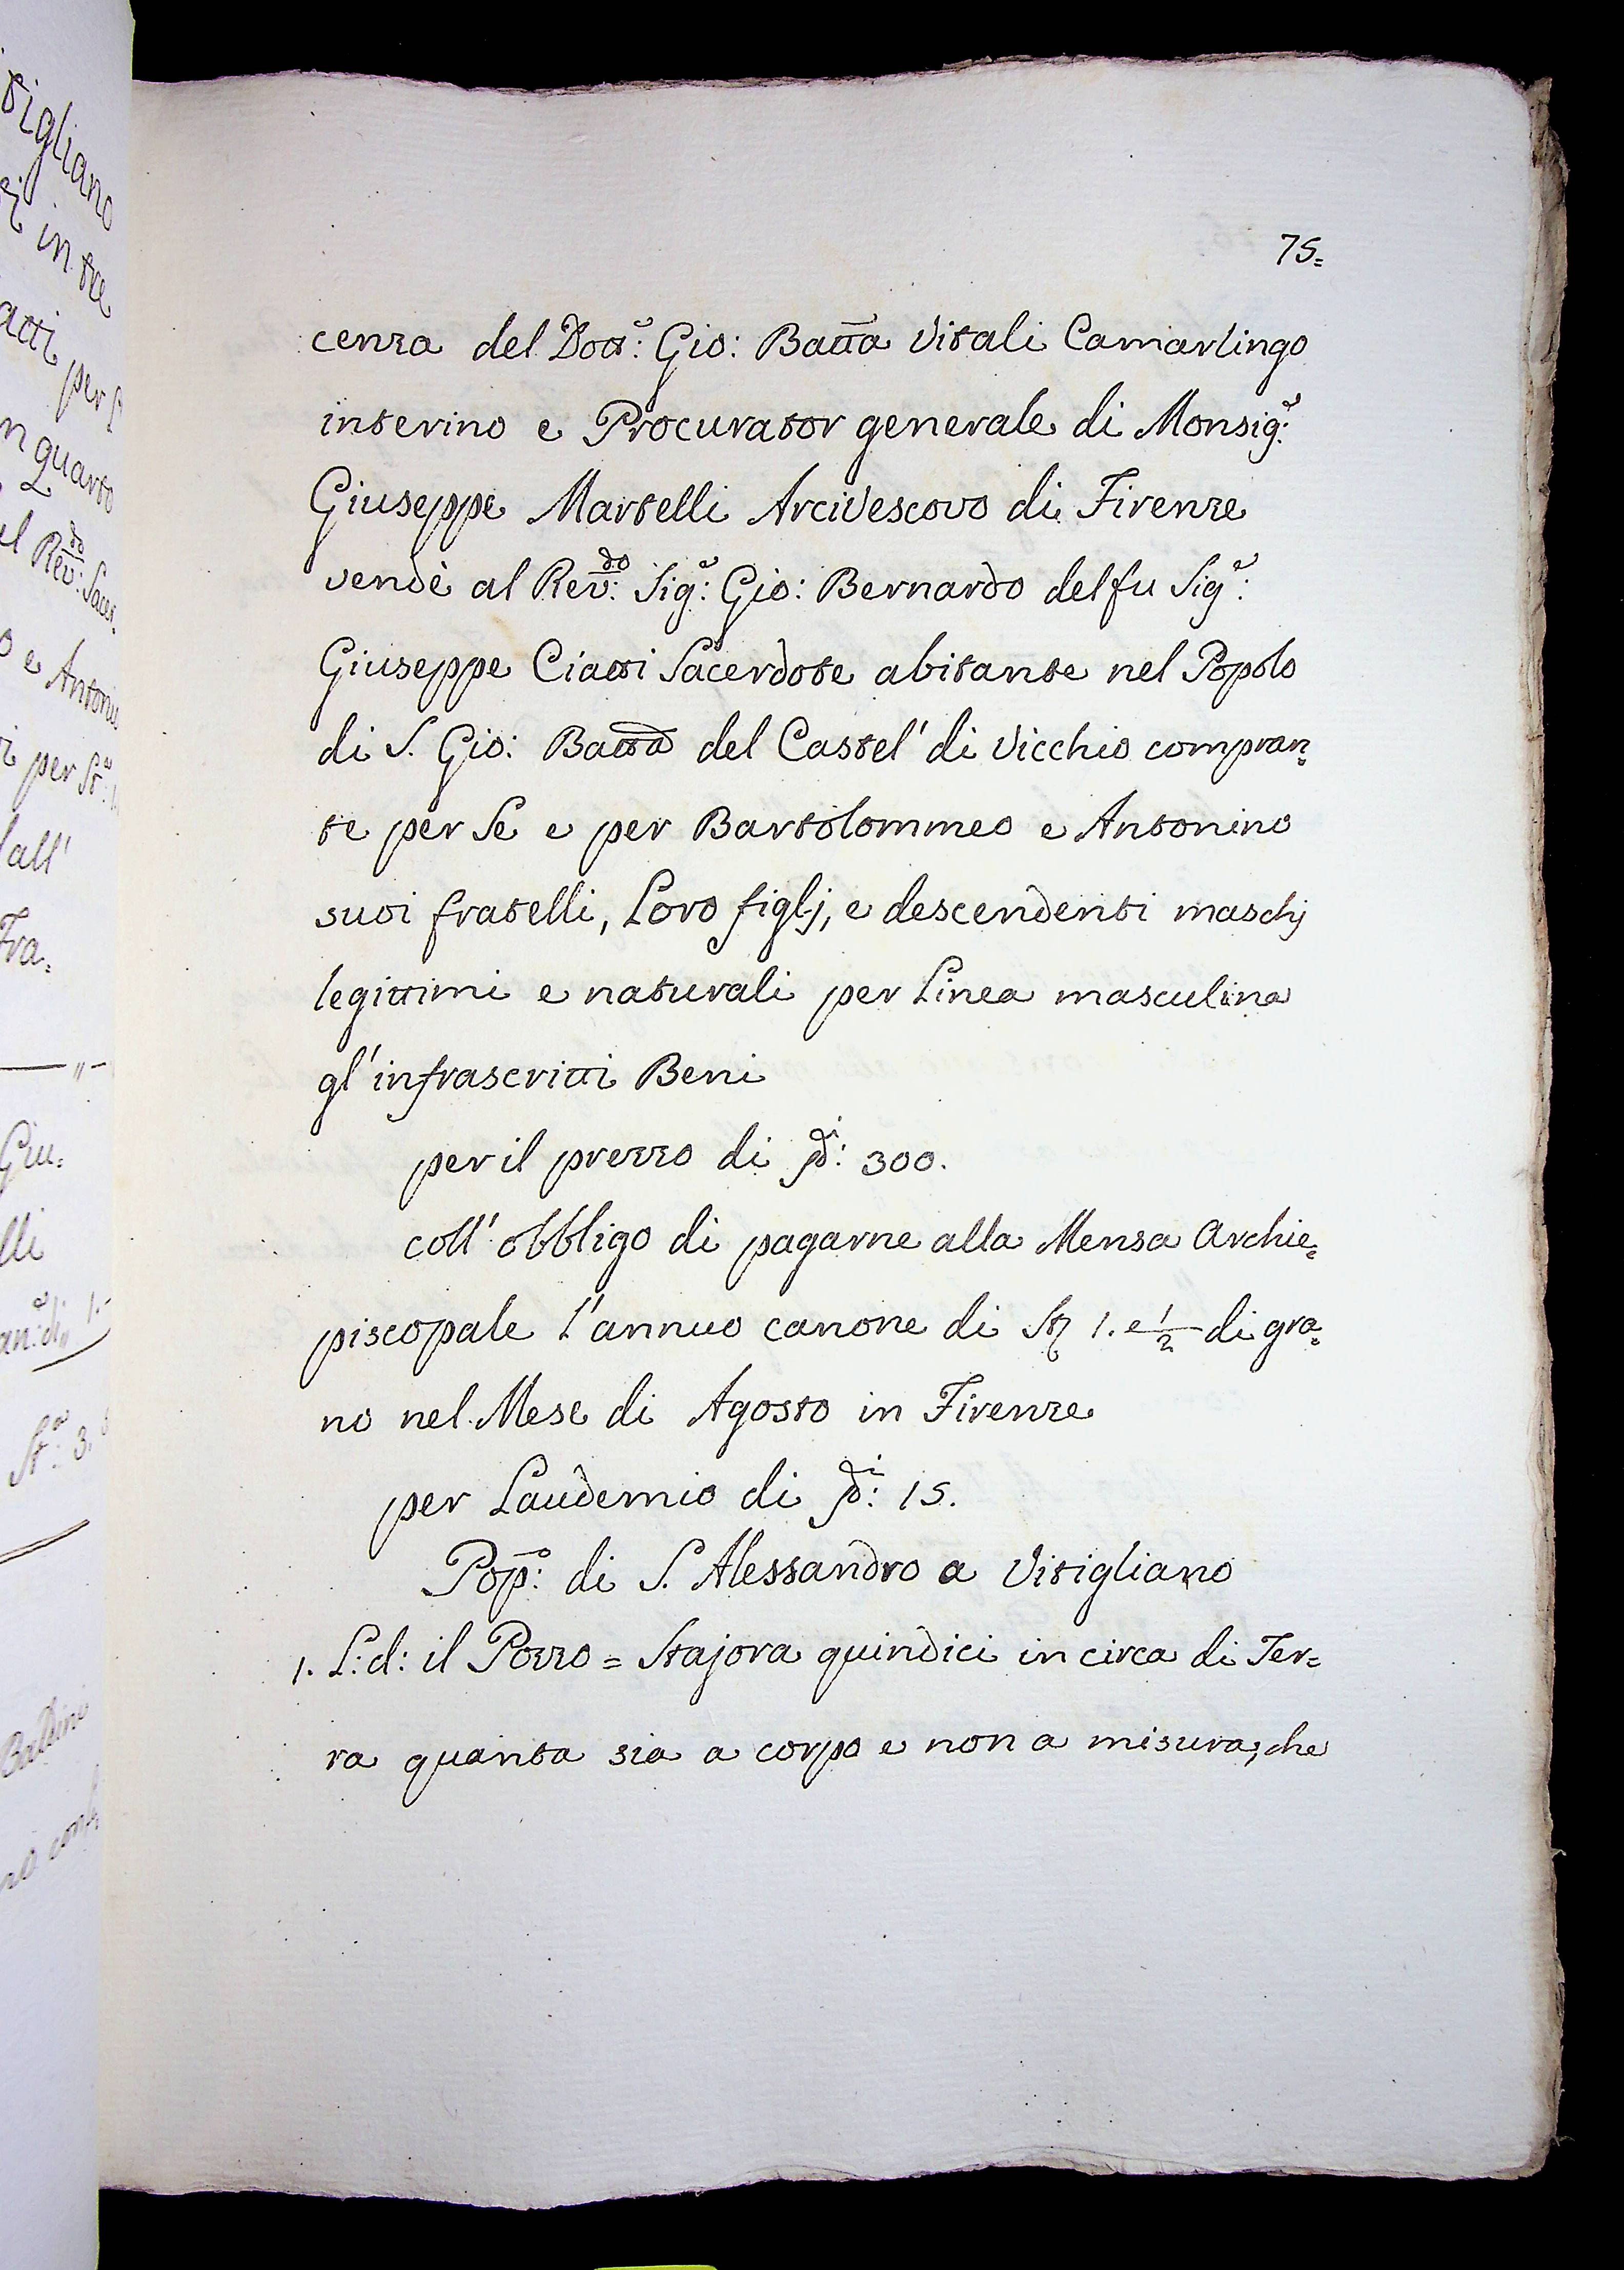 75=
cenza del Dott.r: Gio: Batta Vitali Camarlingo
interino e Procurator generale di Monsig.r:
Giuseppe Martelli Arcivescovo di Firenze
vendè al Rev.do: Sig.r: Gio: Bernardo del fu Sig.r:
Giuseppe Ciatti Sacerdote abitante nel Popolo
di S. Gio: Batta del Castel' di Vicchio compran=
te per Se e per Bartolommeo e Antonino
suoi fratelli, Loro figlj, e descendenti maschj
legittimi e naturali per Linea masculina
gl'infrascritti Beni
per il prezzo di 300.
coll' obbligo di pagarne alla Mensa Archie=
piscopale l'annuo canone di St 1. e 1/2 di gra=
no nel Mese di Agosto in Firenze
per Laudemio di 15.
Pop: di S. Alessandro a Vitigliano
1. L: d: il Pozzo = Stajora quindici in circa di Ter=
ra quanta sia a corpo e non a misura, che